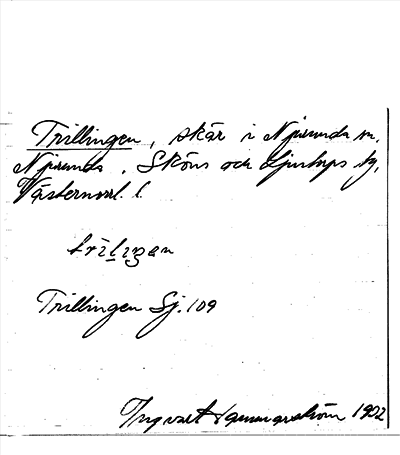 Trillingen, skär i Njurunda sn,
Njurunda, Sköns och Ljustorps tg,
Västernorrl. l.
trìliŋan
Trillingen Sj. 109
Ingvart 1902